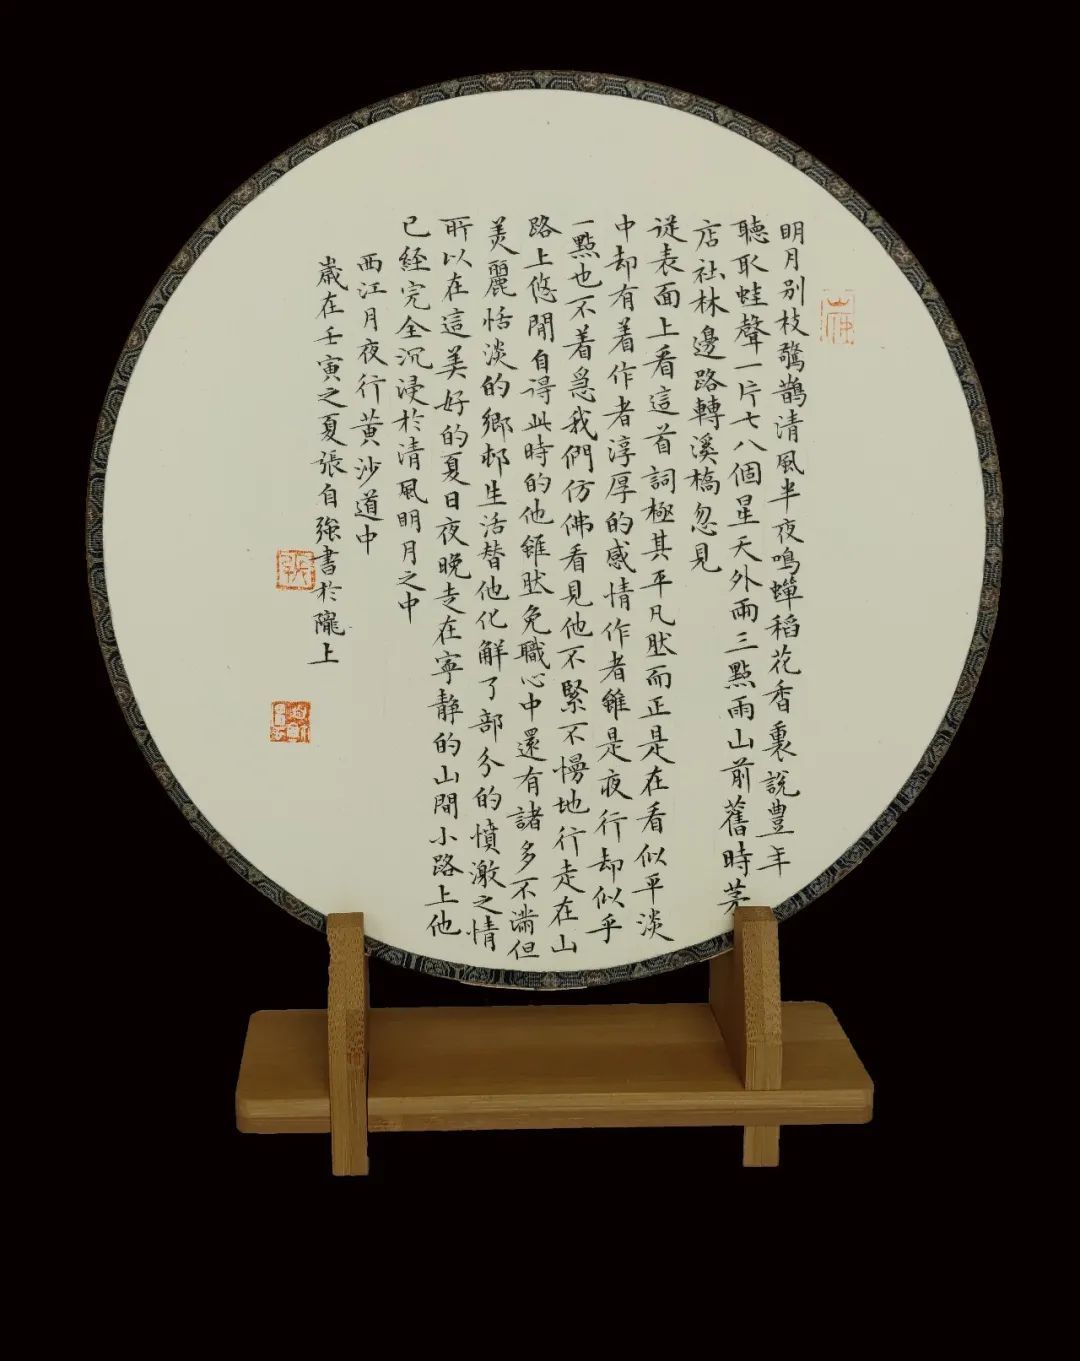 明月別枝驚鵲清風半夜鳴蟬稻花香裏說豊年
聽取蛙聲一片七八個星天外兩三點雨山前舊時茅
店社林邊路轉溪橋忽見
從表面上看這首詞極其平凡然而正是在看似平淡
中却有着作者淳厚的感情作者雖是夜行却似乎
一點也不着急我們仿佛看見他不緊不慢地行走在山
路上悠閒自得此時的他雖然免職心中還有諸多不滿但
美麗恬淡的鄉邨生活替他化解了部分的憤激之情
所以在這美好的夏日夜晚走在寧静的山間小路上他
已經完全沉浸於清風明月之中
西江月夜行黄沙道中
歲在壬寅之夏張自強書於隴上